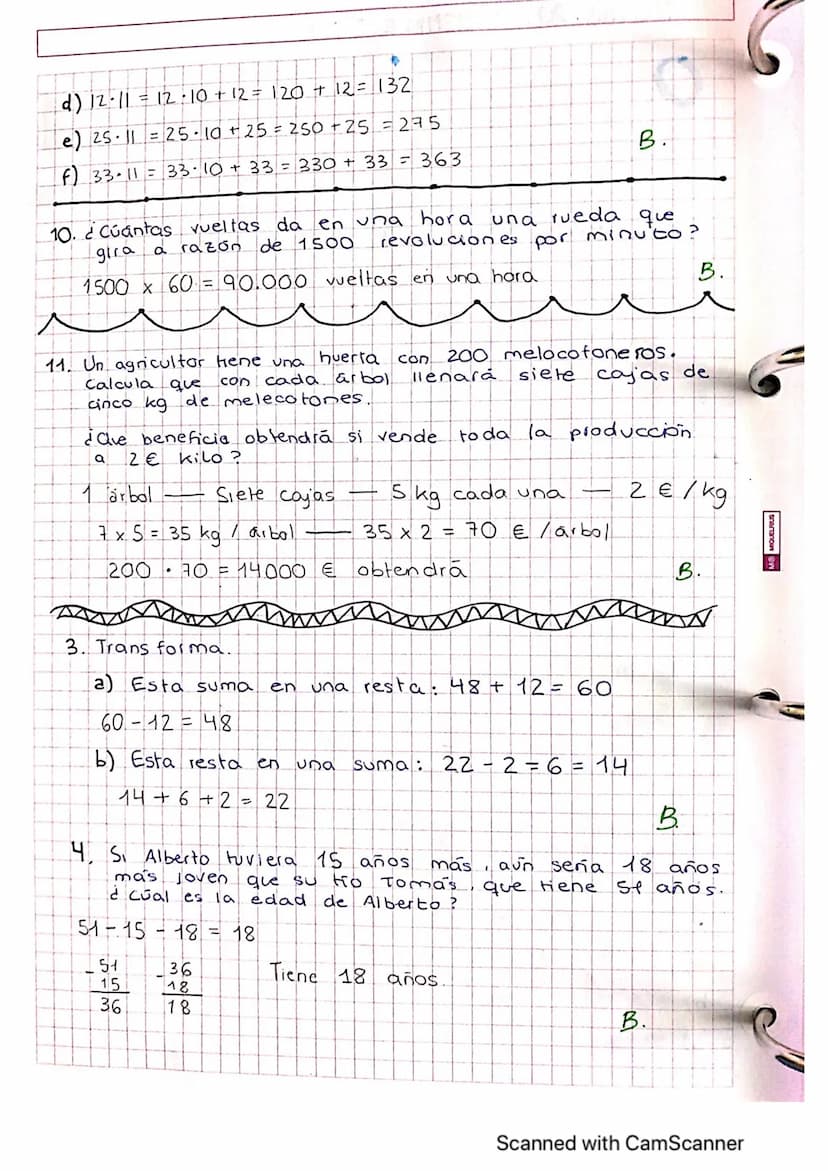 d) 12·11 = 12·10 + 12 = 120 + 12 = 132
e) 25·11 = 25·10 + 25 = 250 + 25 = 275
B.
f) 33·11 = 33·10 + 33 = 330 + 33 = 363
10. ¿Cúantas vueltas da en una hora una rueda que
gira a razón de 1500 revoluciones por minuto?
1500 x 60 = 90.000 vueltas en una hora
B.
11. Un agricultor tiene una huerta con 200 melocotoneros.
Calcula que con cada árbol llenará siete cajas de
cinco kg de melecotones.
¿Que beneficio obtendrá si vende toda la producción
a 2€ kilo?
1 árbol — Siete cajas — 5 kg cada una — 2 €/kg
7 x 5 = 35 kg / árbol — 35 x 2 = 70 € / árbol
200 · 70 = 14000 € obtendrá
B.
MIQUELRIUS
3. Transforma.
a) Esta suma en una resta: 48 + 12 = 60
60 - 12 = 48
b) Esta resta en una suma: 22 - 2 = 6 = 14
14 + 6 + 2 = 22
B.
4. Si Alberto tuviera 15 años más, aún sería 18 años
más joven que su tío Tomás, que tiene 51 años.
¿cúal es la edad de Alberto?
51 - 15 - 18 = 18
-51 -36 Tiene 18 años.
15 18
36 18
B.
Scanned with CamScanner